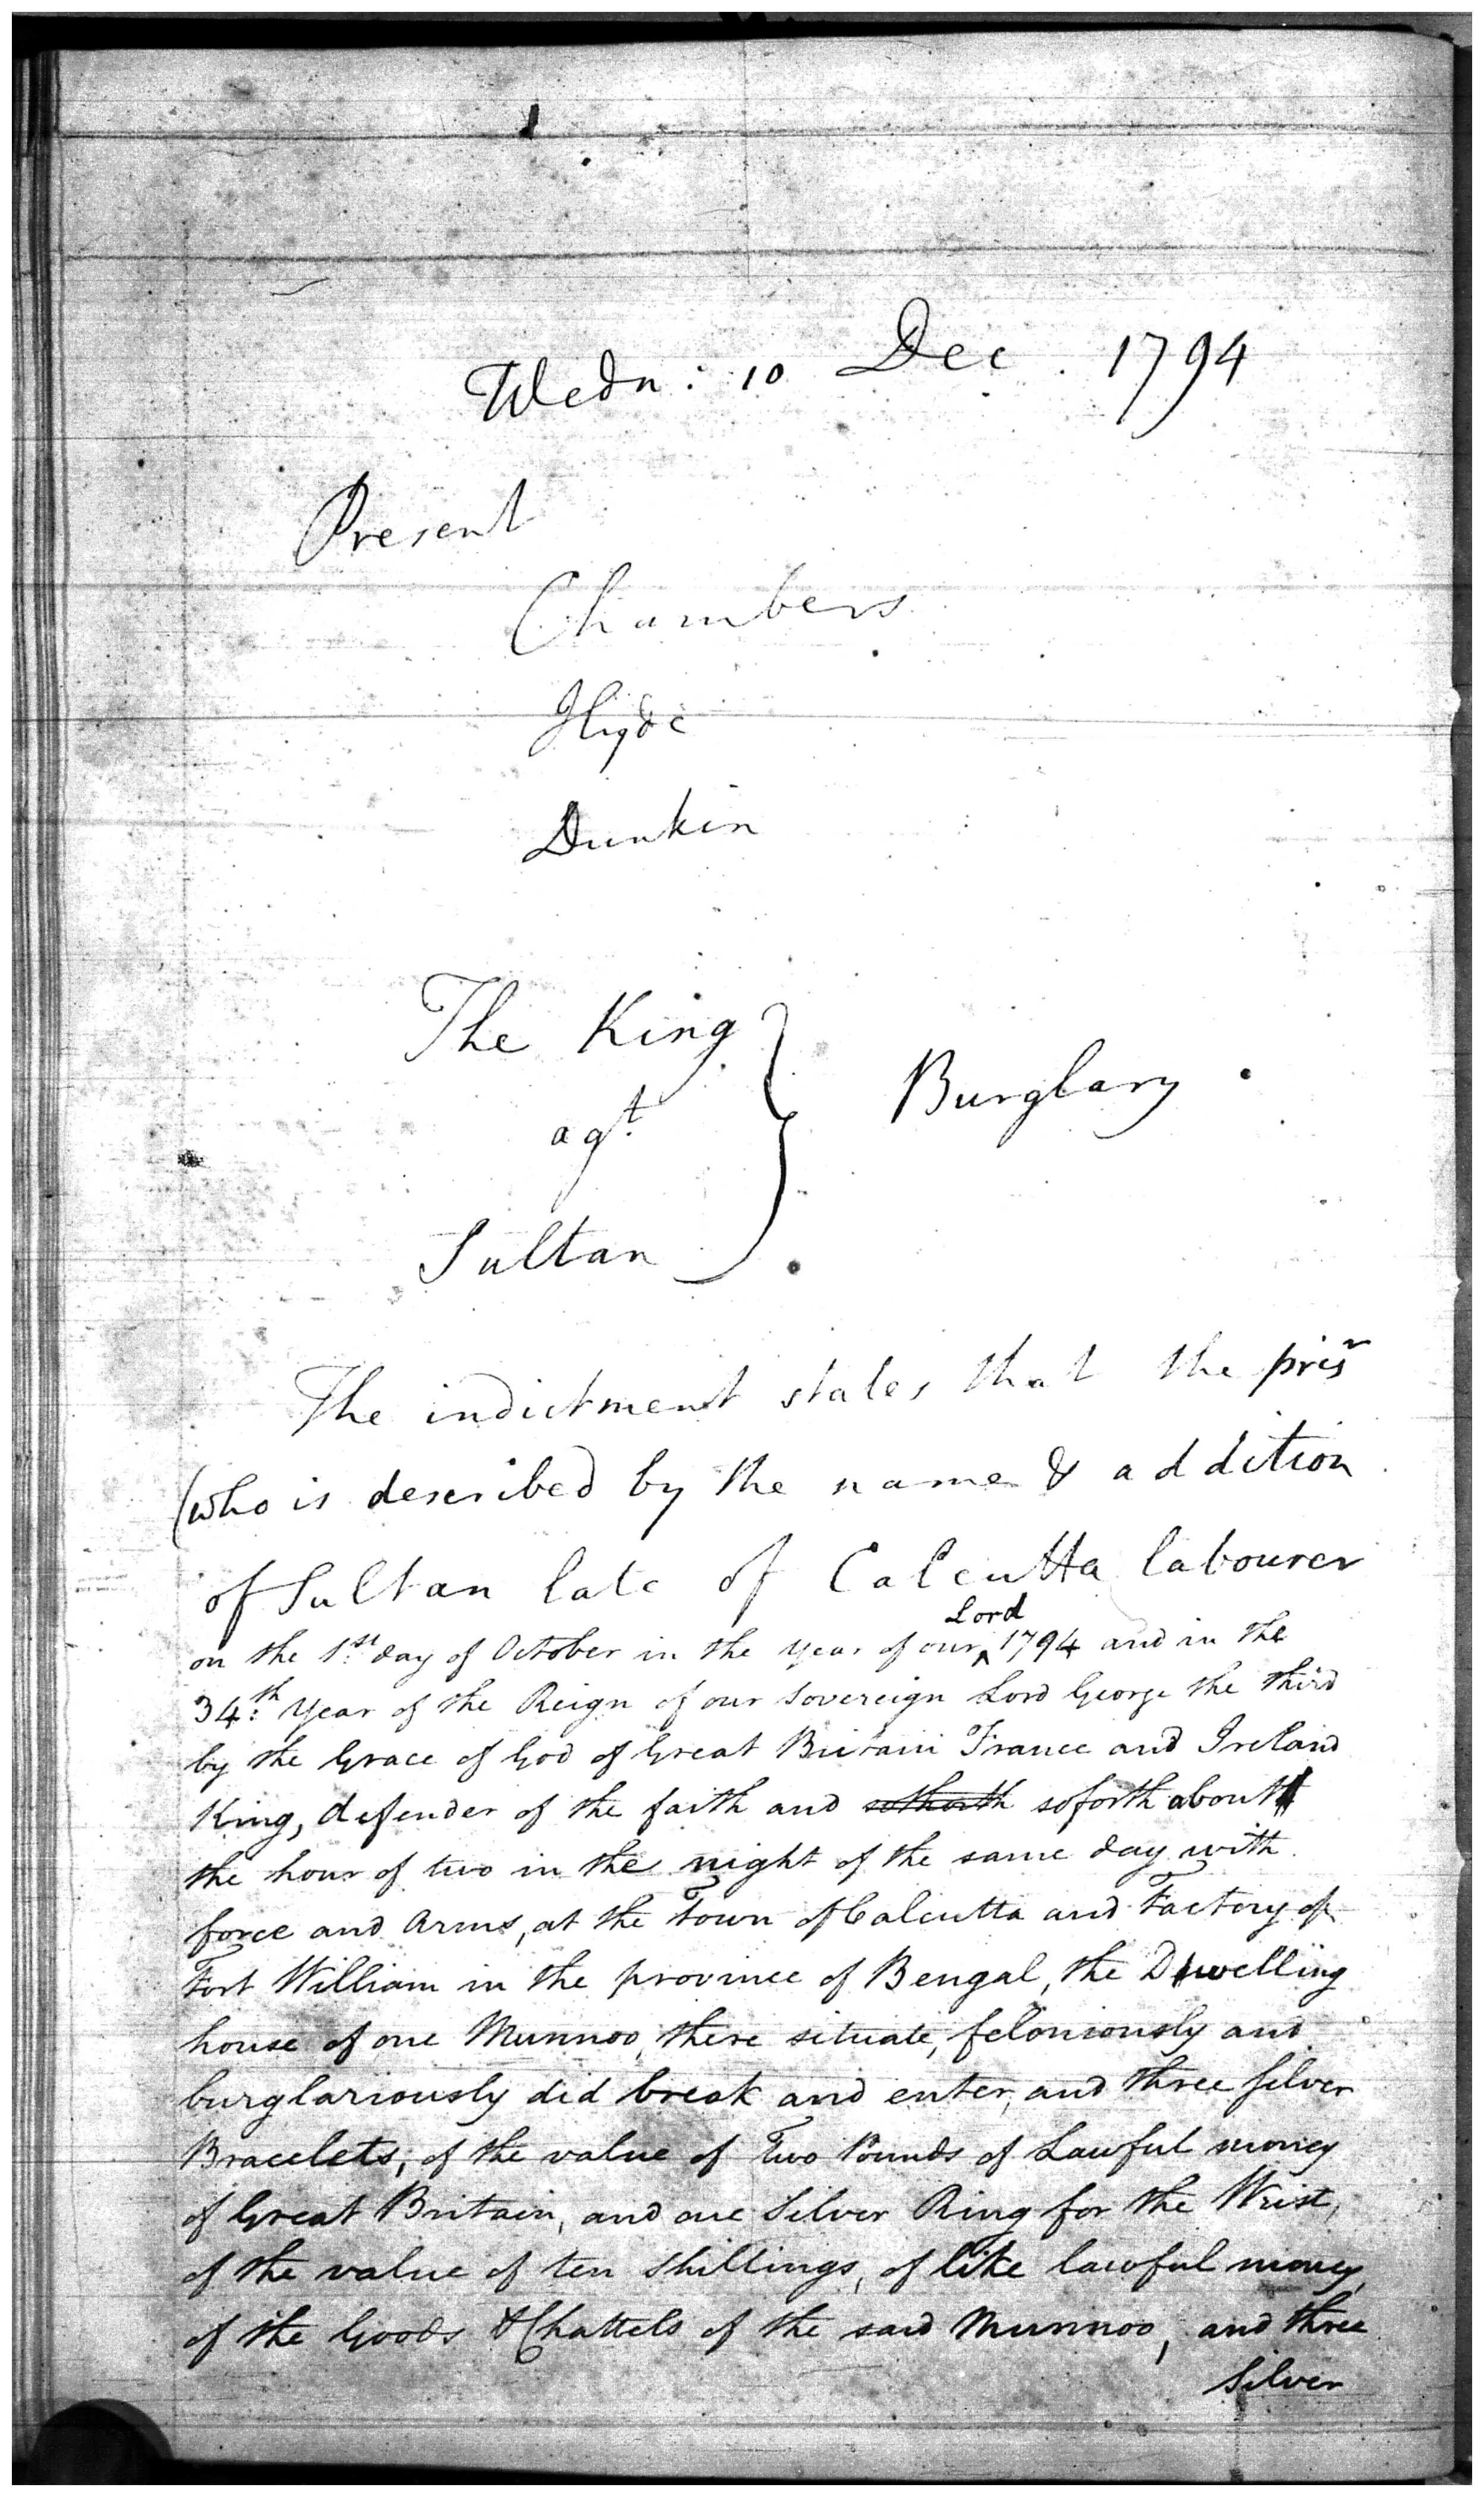 Wedn: 10 Dec. 1794
Present
Chambers
Hyde
Dunkin
The King
agt
Burglary.
Sultan
The indictment states that the prisr
(who is described by the name & addition
of Sultan late of Calcutta labourer
Lord
on the 1st day of October in the Year of our ^ 1794 and in the
34th Year of the Reign of our Sovereign Lord George the third
by the Grace of God of Great Britain France and Ireland
King, defender of the faith and sothorth soforth about
the hour of two in the night of the same day with
force and Arms, at the Town of Calcutta and Factory of
Fort William in the province of Bengal, the Dwelling
house of one Munnoo, there situate, feloniously and
burglariously did break and enter, and three Silver
Bracelets, of the value of Two Pounds of Lawful money
of Great Britain, and one Silver Ring for the Wrist,
of the value of ten shillings, of like lawful money,
of the Goods & Chattels of the said Munnoo, and three
Silver